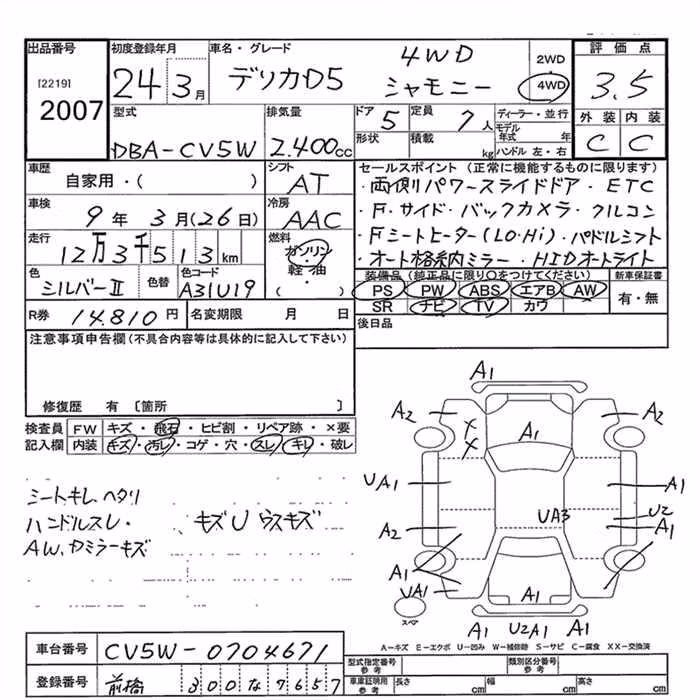 出品番号
[2219]
2007
初度登録年月
24 3月
車名・グレード
4WD
デリカD5 シャモニー
2WD
4WD
評価点
3.5
外装 内装
C C
型式
DBA-CV5W
排気量
2.400cc
ドア 5
定員 7人
形状
積載 kg
ディーラー・並行
モデル年式 年
ハンドル 左・右
車歴
自家用・( )
シフト
AT
車検
9年 3月(26日)
冷房
AAC
走行
12万3千513km
燃料
ガソリン・軽油
( )
色
シルバーⅡ
色替
色コード
A31U19
R券 14.810円
名変期限 月 日
セールスポイント (正常に機能するものに限ります)
・両側パワースライドドア・ETC
・F.サイド・バックカメラ・クルコン
・Fシートヒーター(LO・Hi)・パドルシフト
・オート格納ミラー・HIDオートライト
装備品(純正品に限り○をつけてください)
新車保証書
PS PW ABS エアB AW
SR ナビ TV カワ
有・無
後日品
注意事項申告欄(不具合内容等は具体的に記入して下さい)
修復歴 有 〔箇所 〕
検査員記入欄
FW キズ・飛石・ヒビ割・リペア跡・×要
内装 キズ・汚レ・コゲ・穴・スレ・キレ・破レ
シートキレ、ヘタリ
ハンドルスレ・ キズU ウスキズ
AW、カミラーキズ
A1
A2 A2
A1
UA1 A1
U2
UA3
A2 A1
A1 A1
UA1 A1
スペア
A1 U2A1 A1
A-キズ E-エクボ U-凹み W-補修跡 S-サビ C-腐食 XX-交換済
車台番号 CV5W-0704671
登録番号 前橋 300な7657
型式指定番号 参考
類別区分番号 参考
車庫証明用 参考
長さ cm 幅 cm 高さ cm